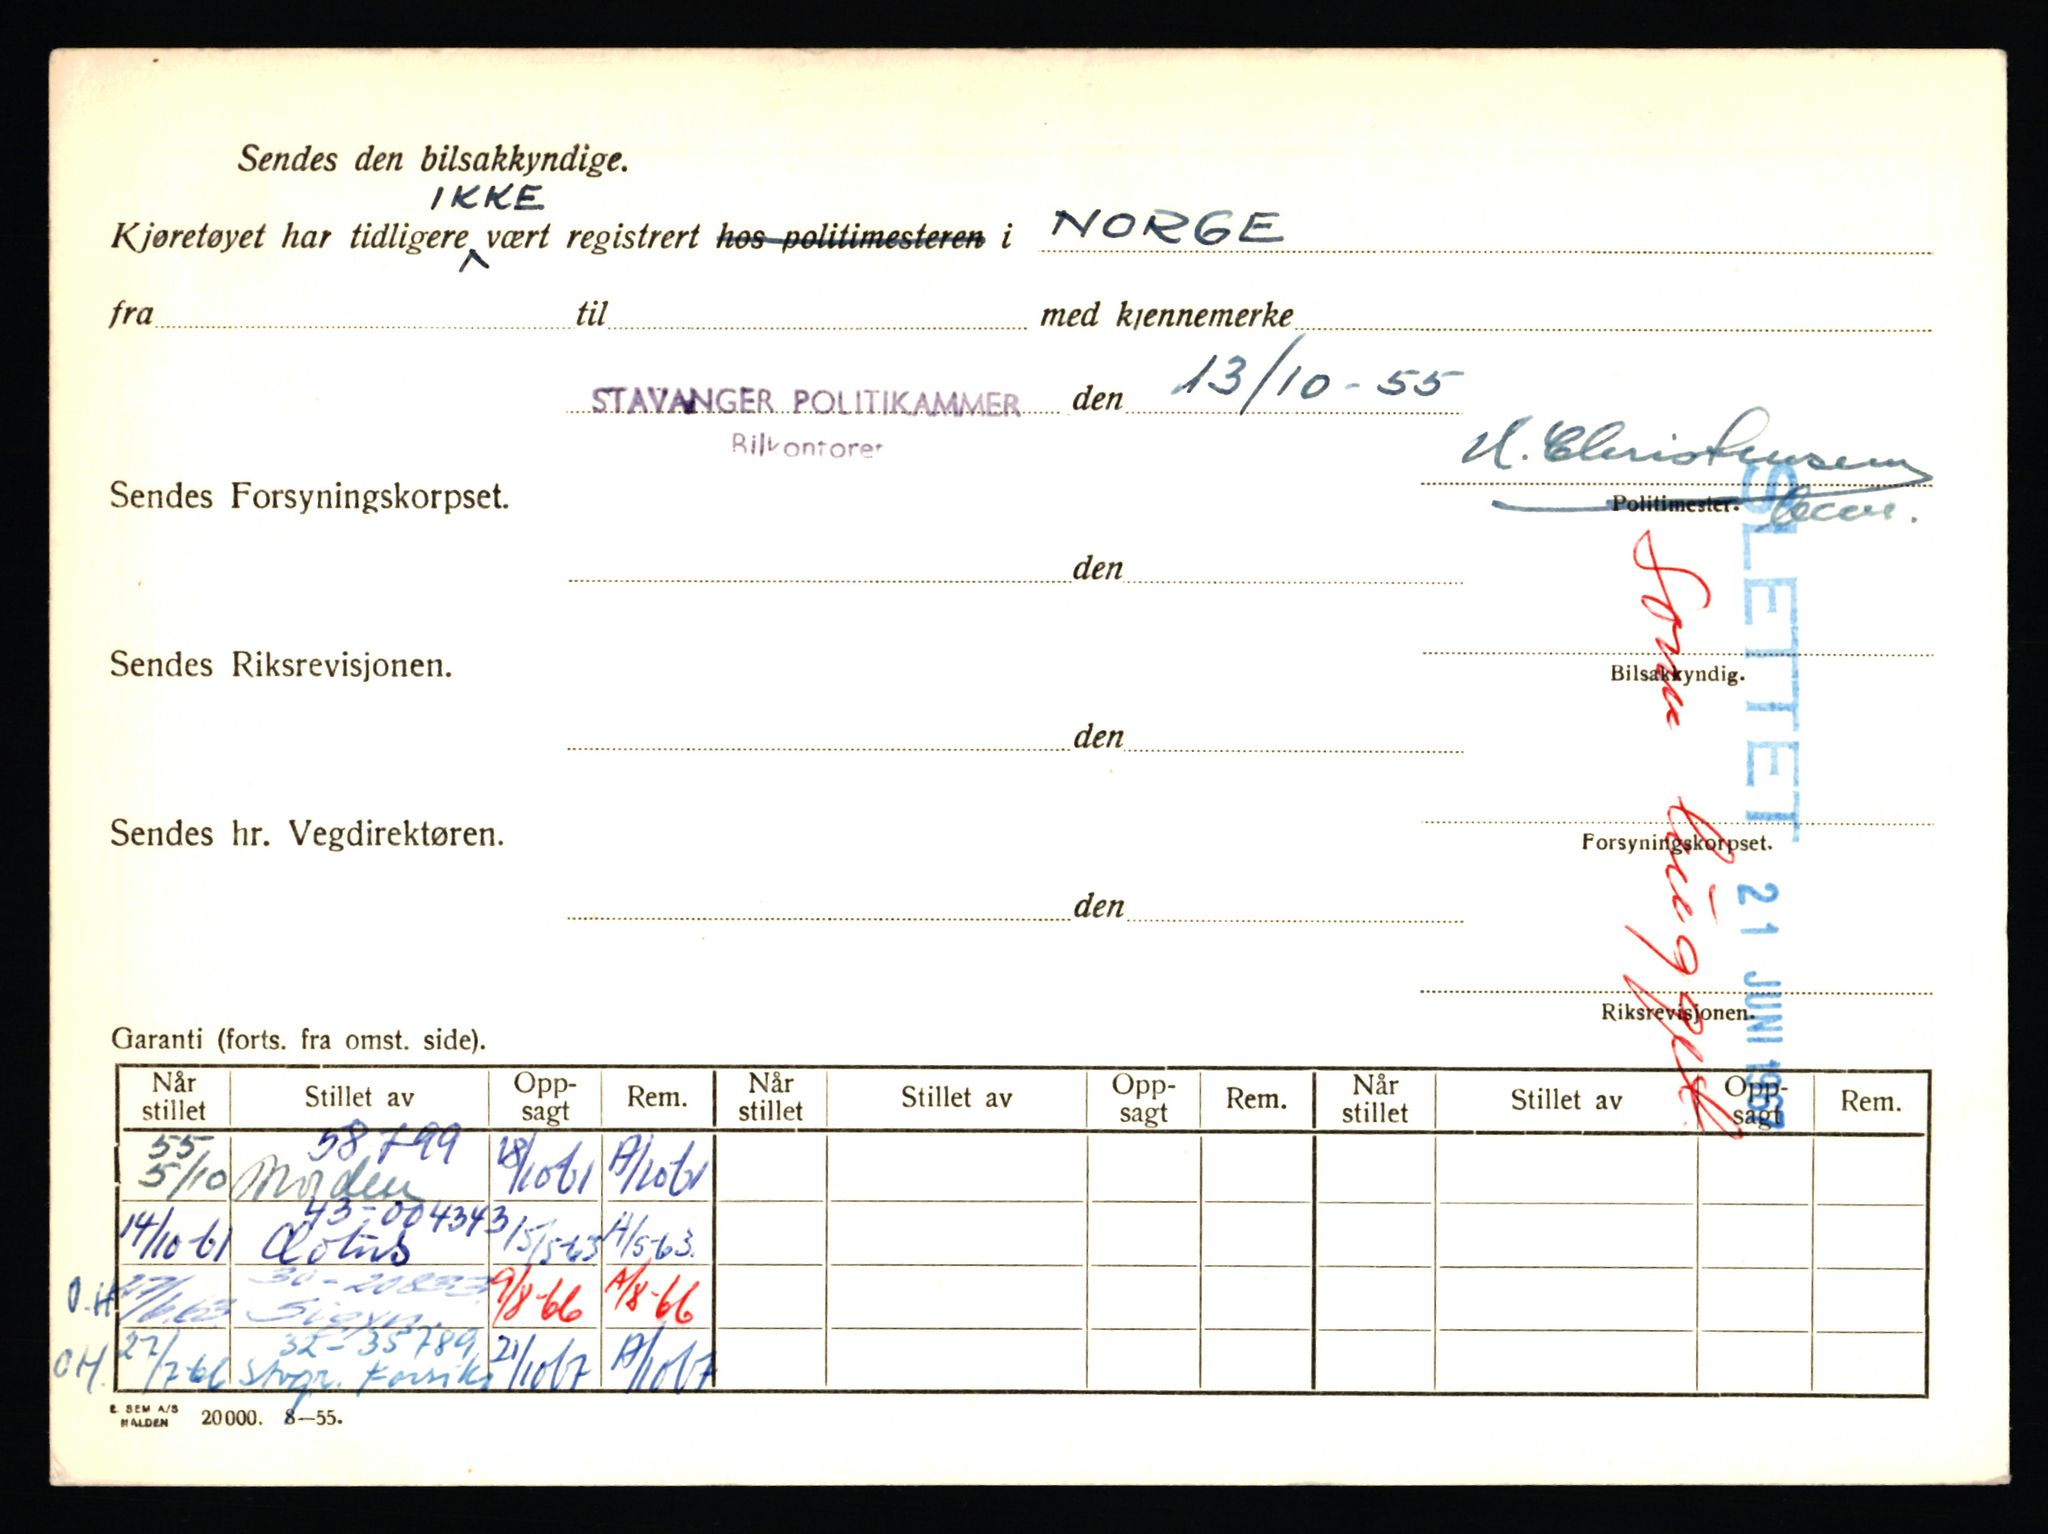 Sendes den bilsakkyndige.
IKKE
Kjøretøyet har tidligere vært registrert hos politimesteren i NORGE
fra til med kjennemerke
STAVANGER POLITIKAMMER den 13/10-55
Bilkontoret
H. Christensen
Sendes Forsyningskorpset.
Politimester.
den
Sendes Riksrevisjonen.
Bilsakkyndig.
den
Sendes hr. Vegdirektøren.
Forsyningskorpset.
den
Riksrevisjonen.
SLETTET 21 JUNI 1967
Garanti (forts. fra omst. side).
Når stillet Stillet av Opp-sagt Rem. Når stillet Stillet av Opp-sagt Rem. Når stillet Stillet av Opp-sagt Rem.
55 58799
5/10 Norden 18/10 61 A/10 61
43-004343
14/10-61 Lotus 15/5-63 A/5-63.
O.H 27/6.63 Sigyn. 9/8-66 A/8-66
32-35789
OH. 27/7-66 Stvgr. Forsikr 21/10 67 A/10 67
E. SEM A/S
HALDEN 20000. 8—55.